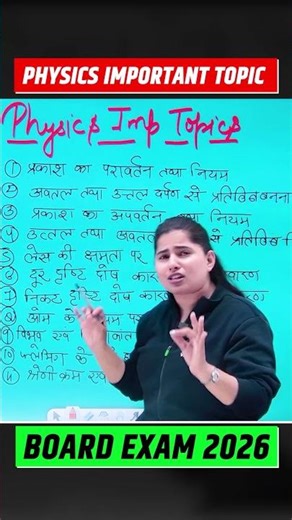 PHYSICS IMPORTANT TOPIC
Physics Imp Topics
① प्रकाश का परावर्तन तथा नियम
② अवतल तथा उत्तल दर्पण से प्रतिबिंब बनना
③ प्रकाश का अपवर्तन तथा नियम
④ उत्तल तथा अवतल से प्रतिबिंब
⑤ लेंस की क्षमता पर
⑥ दूर दृष्टि दोष कारण
⑦ निकट दृष्टि दोष कारण
⑧ ओम के
⑨ विभव एवं
⑩ फ्लेमिंग के
⑪ श्रेणी क्रम एवं
BOARD EXAM 2026